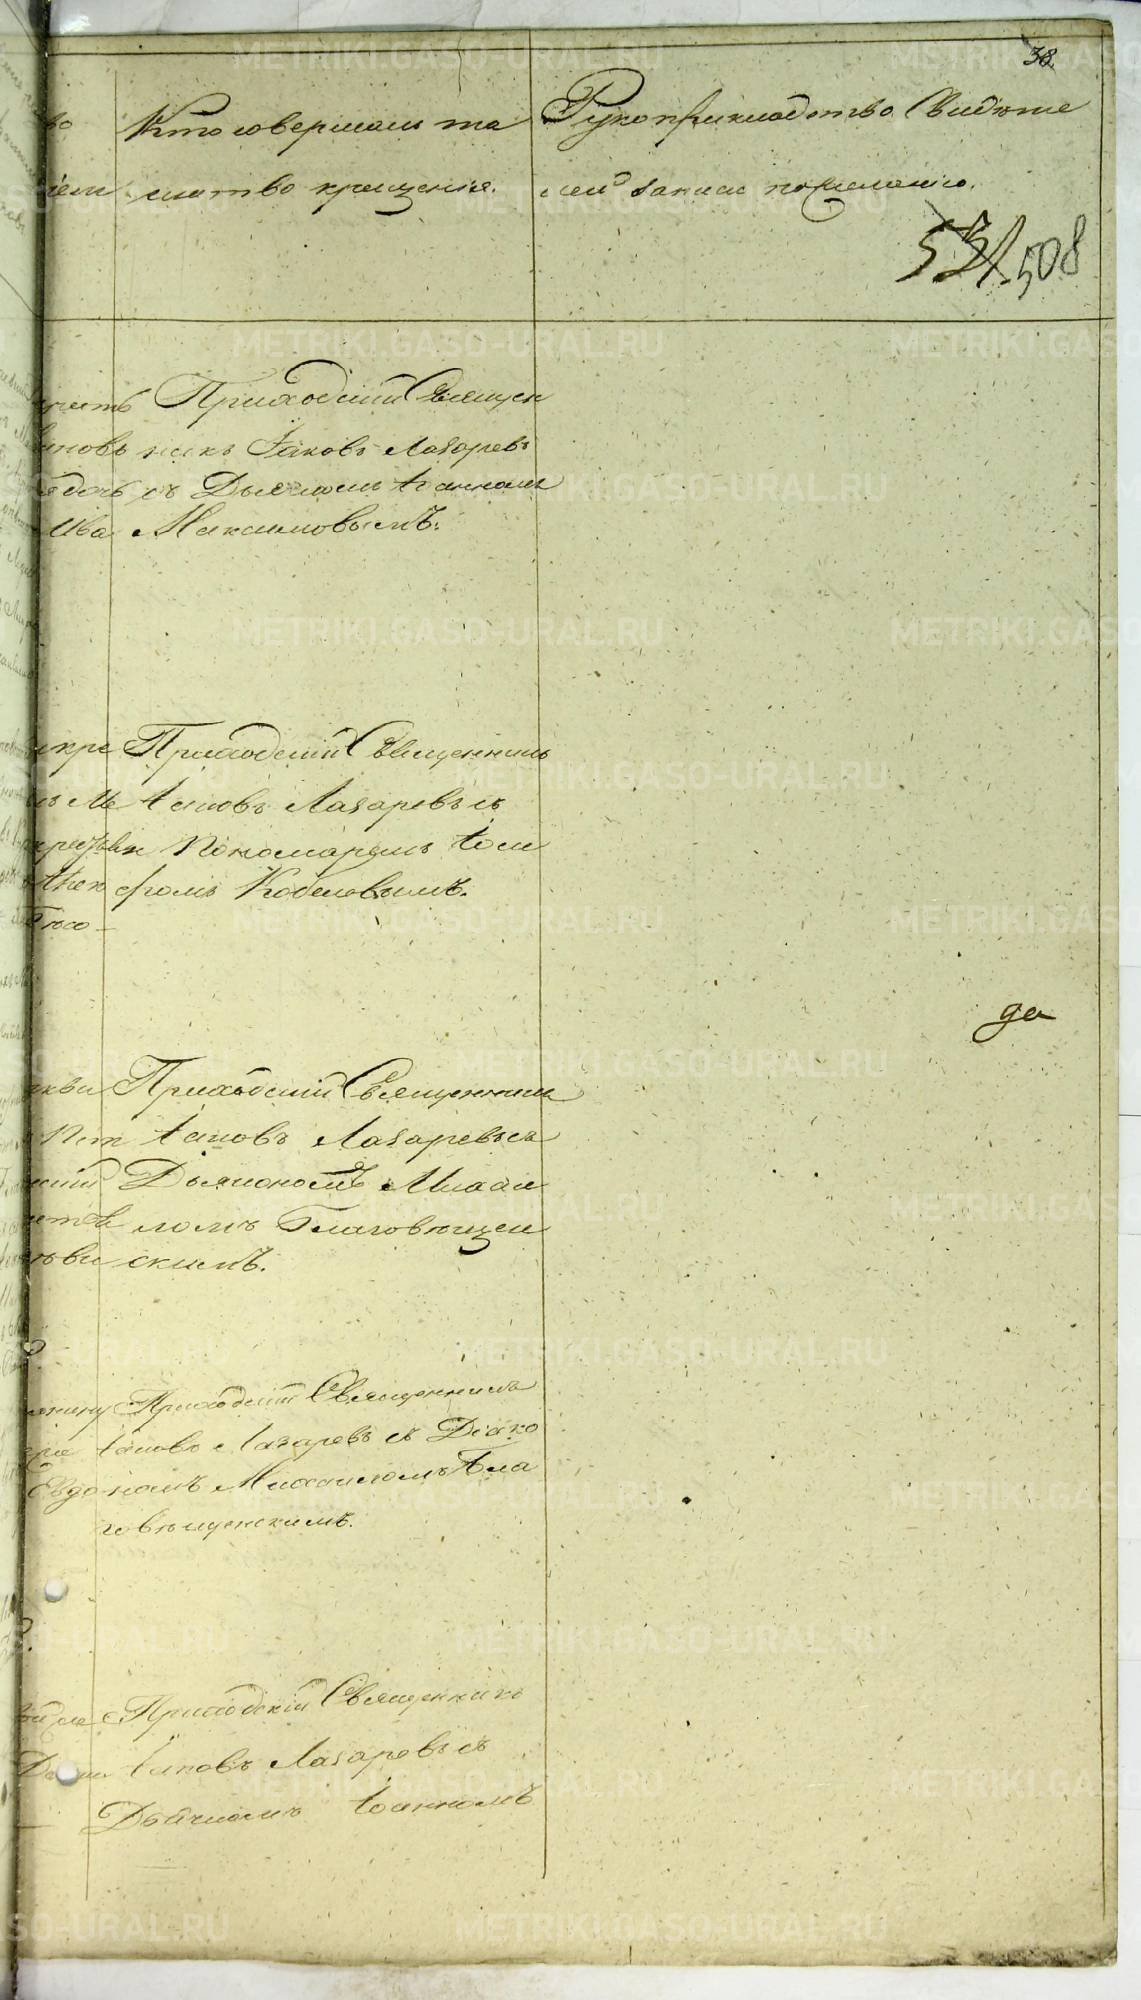 38.
Кто совершалъ та
инство крещенія.
Рукоприкладство Свидѣте
лей записи по желанію.
531. 508
Приходскій Священ
никъ Іаковъ Лазаревъ
съ Дьячкомъ Іоанномъ
Максимовымъ.
Приходскій Священникъ
Іаковъ Лазаревъ съ
Пономаремъ Іоси
фомъ Кобелевымъ.
Приходскій Священникъ
Іаковъ Лазаревъ съ
Дьякономъ Михаи
ломъ Благовѣщен
скимъ.
да
Приходскій Священникъ
Іаковъ Лазаревъ съ Діако
номъ Михаиломъ Бла
говѣщенскимъ.
Приходскій Священникъ
Іаковъ Лазаревъ съ
Дьячкомъ Іоанномъ
METRIKI.GASO-URAL.RU